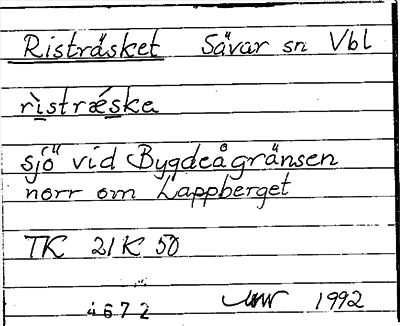 Risträsket Sävar sn Vbl
rìstrǽska
sjö vid Bygdeågränsen
norr om Lappberget
TK 21K 5D
4672 1992